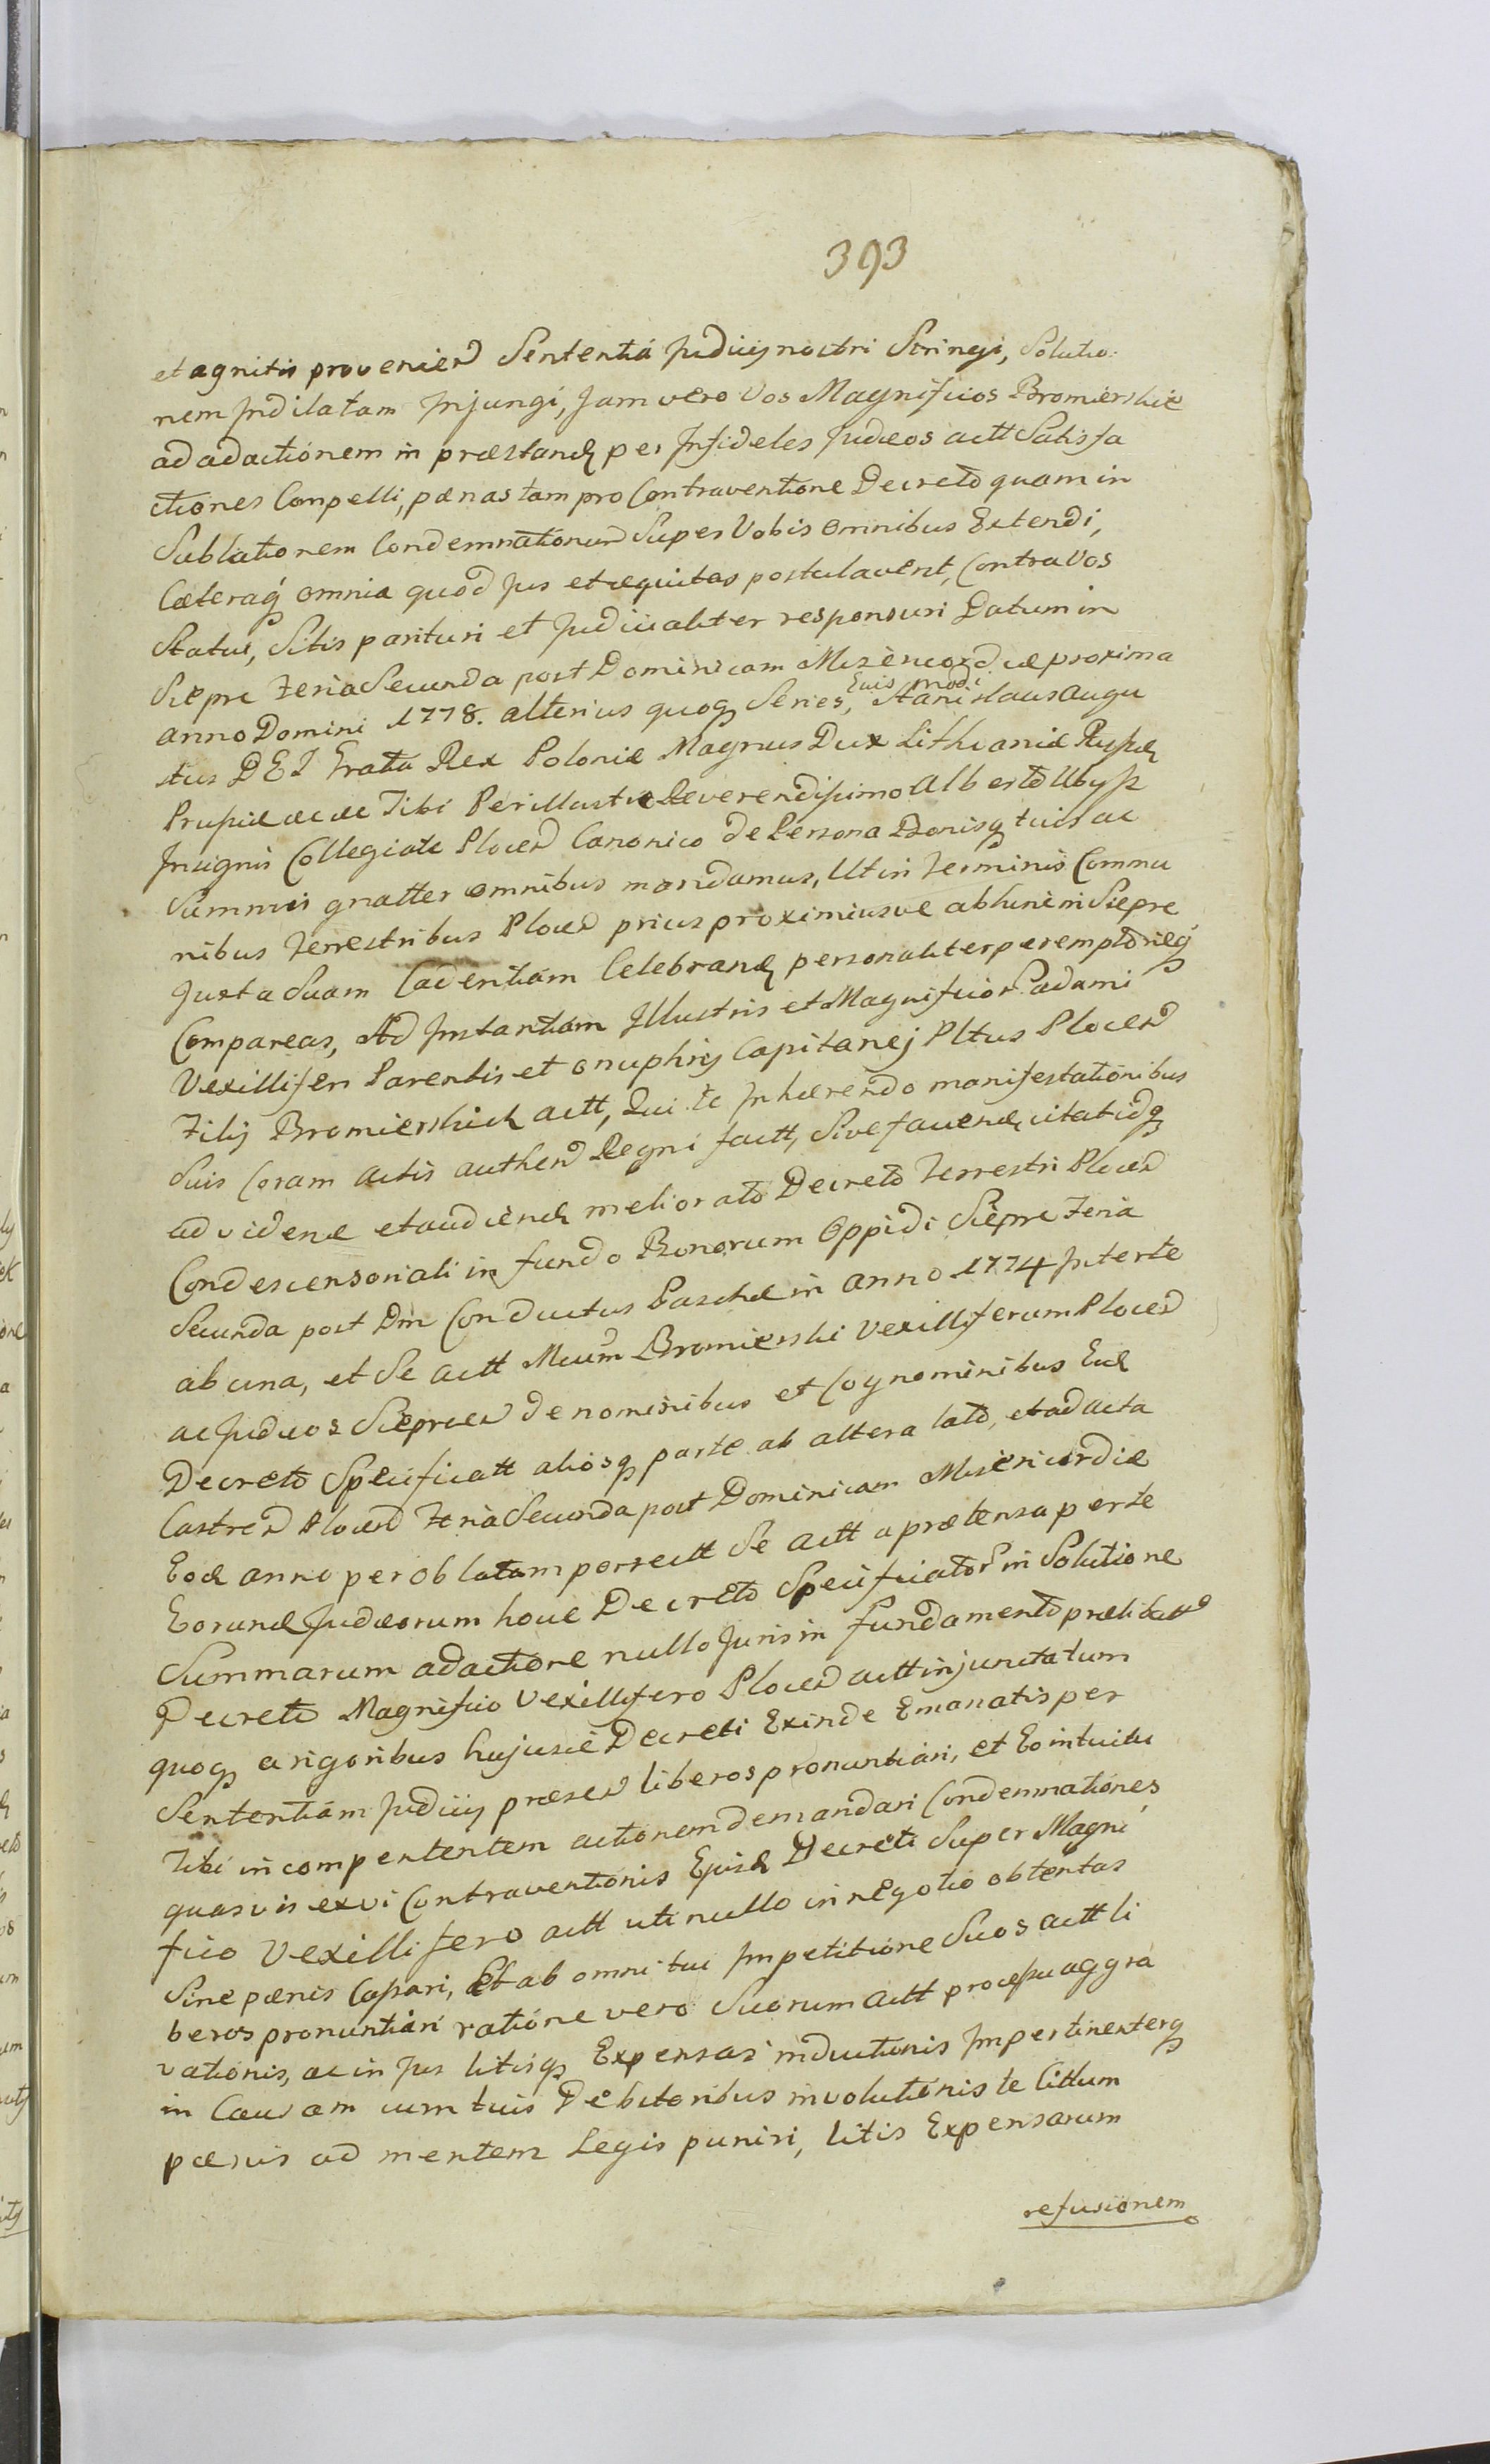 393
et agnitis provenien Sententia Judicij nostri Stringi, Solutio:
nem Indilatam Injungi, Jam vero Vos Magnificos Bromierskie
ad adactionem in præstand per Infideles Judæos actt Satisfa
ctiones Compelli, pænas tam pro Contraventione Decreto quam in
Sublationem Condemnationum Super Vobis omnibus Extendi,
Cæteraq omnia quod Jus et æquitas postulaverit, Contra Vos
Statui, Sitis parituri et Judicialiter responsuri Datum in
Sierpc Feria Secunda post Dominicam Misericordiæ proxima
anno Domini 1778. alterius quoq Series, Euis modi Stanislaus Augu
stus DEI Gratia Rex Poloniæ Magnus Dux Lithuaniæ Russiæ
Prussiæ &c &c Tibi Perillustri Reverendissimo Alberto Ubysz
Insignis Collegiatæ Plocen Canonico de Persona Bonisq tuis ac
Summis gnalter omnibus mandamus, Ut in Terminis Commu
nibus Terrestribus Plocen prius proximiusve abhinc in Sierpc
Juxta Suam Cadentiam Celebrand personaliter peremptorieq
Compareas, Ad Instantiam Illustris et Magnificor Adami
Vexilliferi Parentis et Onuphrij Capitanej Pltus Plocen
Filij Bromierskich actt, Qui Te Inhærendo manifestationibus
Suis Coram Actis authen Regni factt, Sive faciend, citatidq
ad videnæ et audiend meliorato Decreto Terrestri Plocen
Condescensoriali in fundo Bonorum Oppidi Sierpc Feria
Secunda post Dm Conductus Paschæ in anno 1774 Inter te
ab una, et Se actt Mcum Bromierski Vexilliferum Plocen
ac Judæos Sierpcen de nominibus et Cognominibus Eod
Decreto Specificatt aliosq parte ab altera lato, et ad acta
Castren Plocen Feria Secunda post Dominicam Misericordiæ
Eod anno per oblatam porrectt Se actt a prætensa per te
Eorund Judæorum hocce Decreto Specificator in Solutione
Summarum adactione nullo Juris in fundamento prælibatto
Decreto Magnifico Vexillifero Plocen actt injuncta tum
quoq a rigoribus hujusce Decreti Exinde Emanatis per
Sententiam Judicij præsen liberos pronuntiari, et Eo intuitu
Tibi incompententem actionem demandari Condemnationes
quasvis ex vi Contraventionis Ejusd Decreti Super Magni
fico Vexillifero actt uti nullo in negotio obtentas
Sine pænis Cassari, Et ab omni tui Impetitione Suos actt li
beros pronuntiari ratione vero Suorum actt processu aggra
vationis, ac in Jus litisq Expensas inductionis Impertinenterq
in Causam cum tuis Debitoribus involutionis te Cittum
pænis ad mentem Legis puniri, litis Expensarum
refusionem